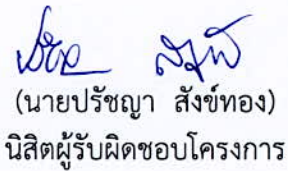 (นายปรัชญา สังข์ทอง)
นิสิตผู้รับผิดชอบโครงการ